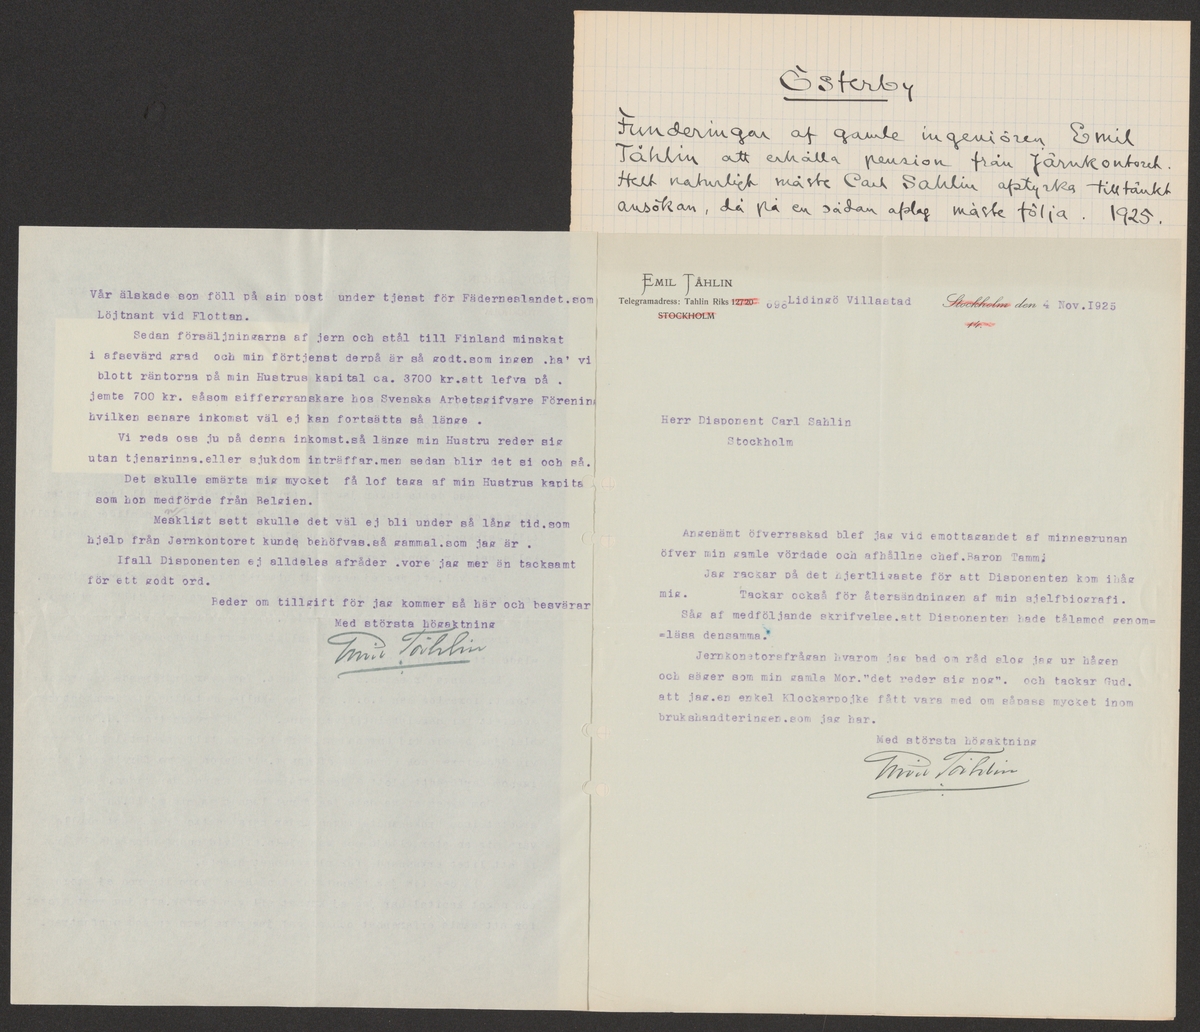 Österby
Funderingar af gamle ingeniören Emil
Tåhlin att erhålla pension från Järnkontoret.
Helt naturligt måste Carl Sahlin afstyrka tilltänkt
ansökan, då på en sådan afslag måste följa. 1925.
Vår älskade son föll på sin post under tjenst för Fäderneslandet.som
Löjtnant vid Flottan.
Sedan försäljningarna af jern och stål till Finland minskat
i afsevärd grad och min förtjenst derpå är så godt.som ingen .ha' vi
blott räntorna på min Hustrus kapital ca. 3700 kr.att lefva på .
jemte 700 kr. såsom siffergranskare hos Svenska Arbetsgifvare Förenin
hvilken senare inkomst väl ej kan fortsätta så länge .
Vi reda oss ju på denna inkomst.så länge min Hustru reder sig
utan tjenarinna.eller sjukdom inträffar.men sedan blir det si och så.
Det skulle smärta mig mycket få lof taga af min Hustrus kapita
som hon medförde från Belgien.
Meskligt sett skulle det väl ej bli under så lång tid.som
hjelp från Jernkontoret kunde behöfvas.så gammal.som jag är .
Ifall Disponenten ej alldeles afråder .vore jag mer än tacksamt
för ett godt ord.
Beder om tillgift för jag kommer så här och besvärar
Med största högaktning
Emil Tåhlin
EMIL TÅHLIN
Telegramadress: Tahlin Riks 12720 098 Lidingö Villastad Stockholm den 4 Nov.1925
STOCKHOLM
Herr Disponent Carl Sahlin
Stockholm
Angenämt öfverraskad blef jag vid emottagandet af minnesrunan
öfver min gamle vördade och afhållne chef.Baron Tamm;
Jag rackar på det hjertligaste för att Disponenten kom ihåg
mig. Tackar också för återsändningen af min sjelfbiografi.
Såg af medföljande skrifvelse.att Disponenten hade tålamod genom=
=läsa densamma.
Jernkonstorsfrågan hvarom jag bad om råd slog jag ur hågen
och säger som min gamla Mor."det reder sig nog". och tackar Gud.
att jag.en enkel Klockarpojke fått vara med om såpass mycket inom
brukshandteringen.som jag har.
Med största högaktning
Emil Tåhlin